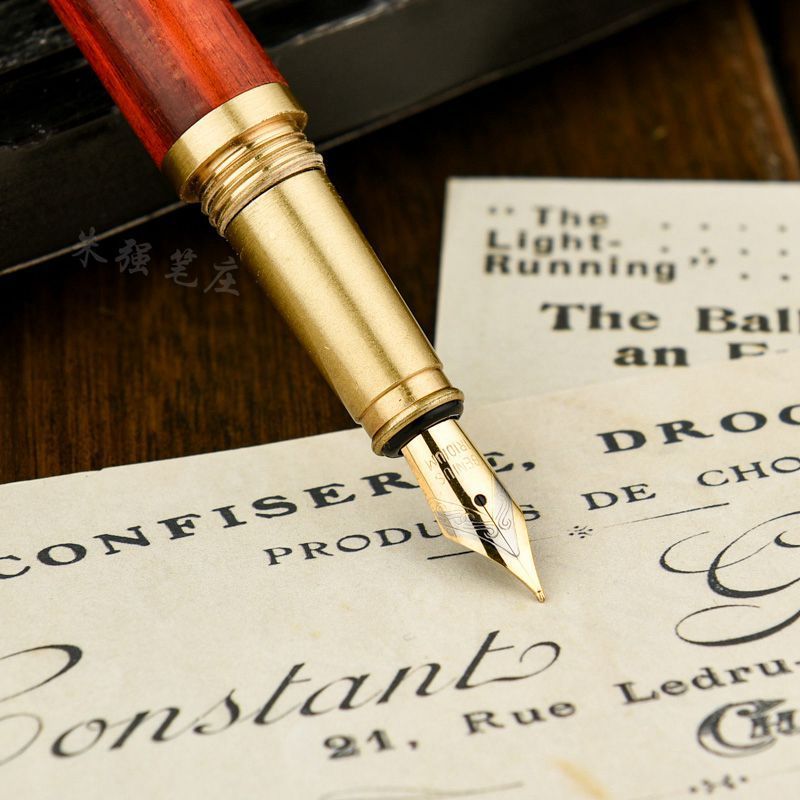 米强笔庄
“The . . . .
Light-
Running” . .
The Ball
an
CONFISERIE, DROG
PRODUITS DE CHO
Constant
21, Rue Ledru-
GENIUS
IRIDIUM